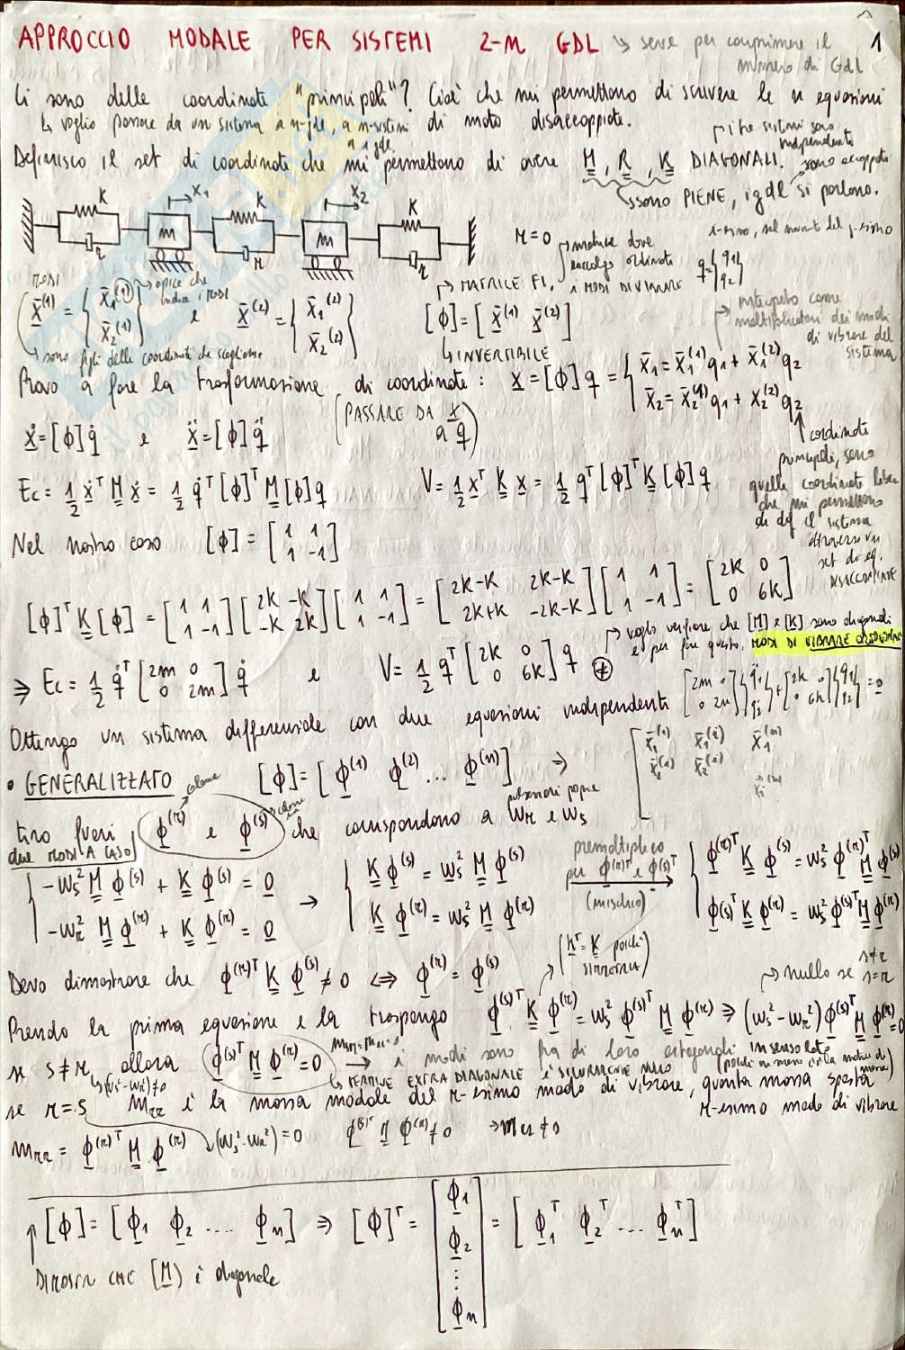 APPROCCIO MODALE PER SISTEMI 2-M GDL ↳ serve per comprimere il numero di Gdl
1
Ci sono delle coordinate "principali"? Cioè che mi permettono di scrivere le n equazioni
↳ voglio passare da un sistema a n-gdl, a n-sistemi a 1 gdl.
di moto disaccoppiate.
Definisco il set di coordinate che mi permettono di avere M, R, K DIAGONALI.
i tre sistemi sono indipendenti
sono accoppiate
↳ sono PIENE, i gdl si parlano.
K x₁ K x₂ K
m m
r r r
R=0
MODI
x̄⁽¹⁾ = { x̄₁⁽¹⁾ x̄₂⁽¹⁾ } e x̄⁽²⁾ = { x̄₁⁽²⁾ x̄₂⁽²⁾ }
apice che indica i MODI
↳ sono figli delle coordinate che scegliamo
matrice dove raccolgo ordinate i MODI DI VIBRARE
q = { q₁ q₂ }
↳ MATRICE FI,
[ϕ] = [ x̄⁽¹⁾ x̄⁽²⁾ ]
↳ INVERTIBILE
interpreto come moltiplicatori dei modi di vibrare del sistema
Provo a fare la trasformazione di coordinate: x = [ϕ] q = { x̄₁ = x̄₁⁽¹⁾q₁ + x̄₁⁽²⁾q₂
x̄₂ = x̄₂⁽¹⁾q₁ + x̄₂⁽²⁾q₂
(PASSARE DA x a q)
ẋ = [ϕ] q̇ e ẍ = [ϕ] q̈
coordinate principali, sono quelle coordinate libere che mi permettono di def il sistema attraverso un set di eq. DISACCOPPIATE
Ec = 1/2 ẋᵀ M ẋ = 1/2 q̇ᵀ [ϕ]ᵀ M [ϕ] q̇ V = 1/2 xᵀ K x = 1/2 qᵀ [ϕ]ᵀ K [ϕ] q
Nel nostro caso [ϕ] = [ 1 1 ; 1 -1 ]
[ϕ]ᵀ K [ϕ] = [ 1 1 ; 1 -1 ] [ 2K -K ; -K 2K ] [ 1 1 ; 1 -1 ] = [ 2K-K 2K-K ; 2K+K -2K-K ] [ 1 1 ; 1 -1 ] = [ 2K 0 ; 0 6K ]
↳ voglio verificare che [M] e [K] sono diagonali e per fare questo, MODI DI VIBRARE ORTOGONALI
⇒ Ec = 1/2 q̇ᵀ [ 2m 0 ; 0 2m ] q̇ e V = 1/2 qᵀ [ 2K 0 ; 0 6K ] q ⊛
Ottengo un sistema differenziale con due equazioni indipendenti [ 2m 0 ; 0 2m ] { q̈₁ q̈₂ } + [ 2K 0 ; 0 6K ] { q₁ q₂ } = 0
• GENERALIZZATO [ϕ] = [ ϕ⁽¹⁾ ϕ⁽²⁾ ... ϕ⁽ⁿ⁾ ] →
tiro fuori ϕ⁽ʳ⁾ e ϕ⁽ˢ⁾ che corrispondono a ωr e ωs
pulsazioni proprie
due MODI A CASO
{ -ωs² M ϕ⁽ˢ⁾ + K ϕ⁽ˢ⁾ = 0 → { K ϕ⁽ˢ⁾ = ωs² M ϕ⁽ˢ⁾ premoltiplico per ϕ⁽ʳ⁾ᵀ e ϕ⁽ˢ⁾ᵀ (mischio) { ϕ⁽ʳ⁾ᵀ K ϕ⁽ˢ⁾ = ωs² ϕ⁽ʳ⁾ᵀ M ϕ⁽ˢ⁾
-ωr² M ϕ⁽ʳ⁾ + K ϕ⁽ʳ⁾ = 0 K ϕ⁽ʳ⁾ = ωs² M ϕ⁽ʳ⁾ ϕ⁽ˢ⁾ᵀ K ϕ⁽ʳ⁾ = ωs² ϕ⁽ˢ⁾ᵀ M ϕ⁽ʳ⁾
Devo dimostrare che ϕ⁽ʳ⁾ᵀ K ϕ⁽ˢ⁾ ≠ 0 ⇔ ϕ⁽ʳ⁾ = ϕ⁽ˢ⁾
(Kᵀ = K poiché SIMMETRICA)
↱ nullo se s≠r s=r
Prendo la prima equazione e la traspongo ϕ⁽ˢ⁾ᵀ K ϕ⁽ʳ⁾ = ωs² ϕ⁽ˢ⁾ᵀ M ϕ⁽ʳ⁾ ⇒ (ωs² - ωr²) ϕ⁽ˢ⁾ᵀ M ϕ⁽ʳ⁾ = 0
se s≠r, allora ϕ⁽ˢ⁾ᵀ M ϕ⁽ʳ⁾ = 0 → i modi sono fra di loro ortogonali in senso lato
↳ (ωs² - ωr²) ≠ 0
↳ TERMINE EXTRA DIAGONALE È SICURAMENTE NULLO
se r=s mrr è la massa modale del r-esimo modo di vibrare, quanta massa sposta r-esimo modo di vibrare
mrr = ϕ⁽ʳ⁾ᵀ M ϕ⁽ʳ⁾ (ωs² - ωr²) = 0
[ϕ] = [ ϕ₁ ϕ₂ .... ϕn ] ⇒ [ϕ]ᵀ = [ ϕ₁ ϕ₂ ⋮ ϕn ] = [ ϕ₁ᵀ ϕ₂ᵀ ... ϕnᵀ ]
DIMOSTRA CHE [M] è diagonale